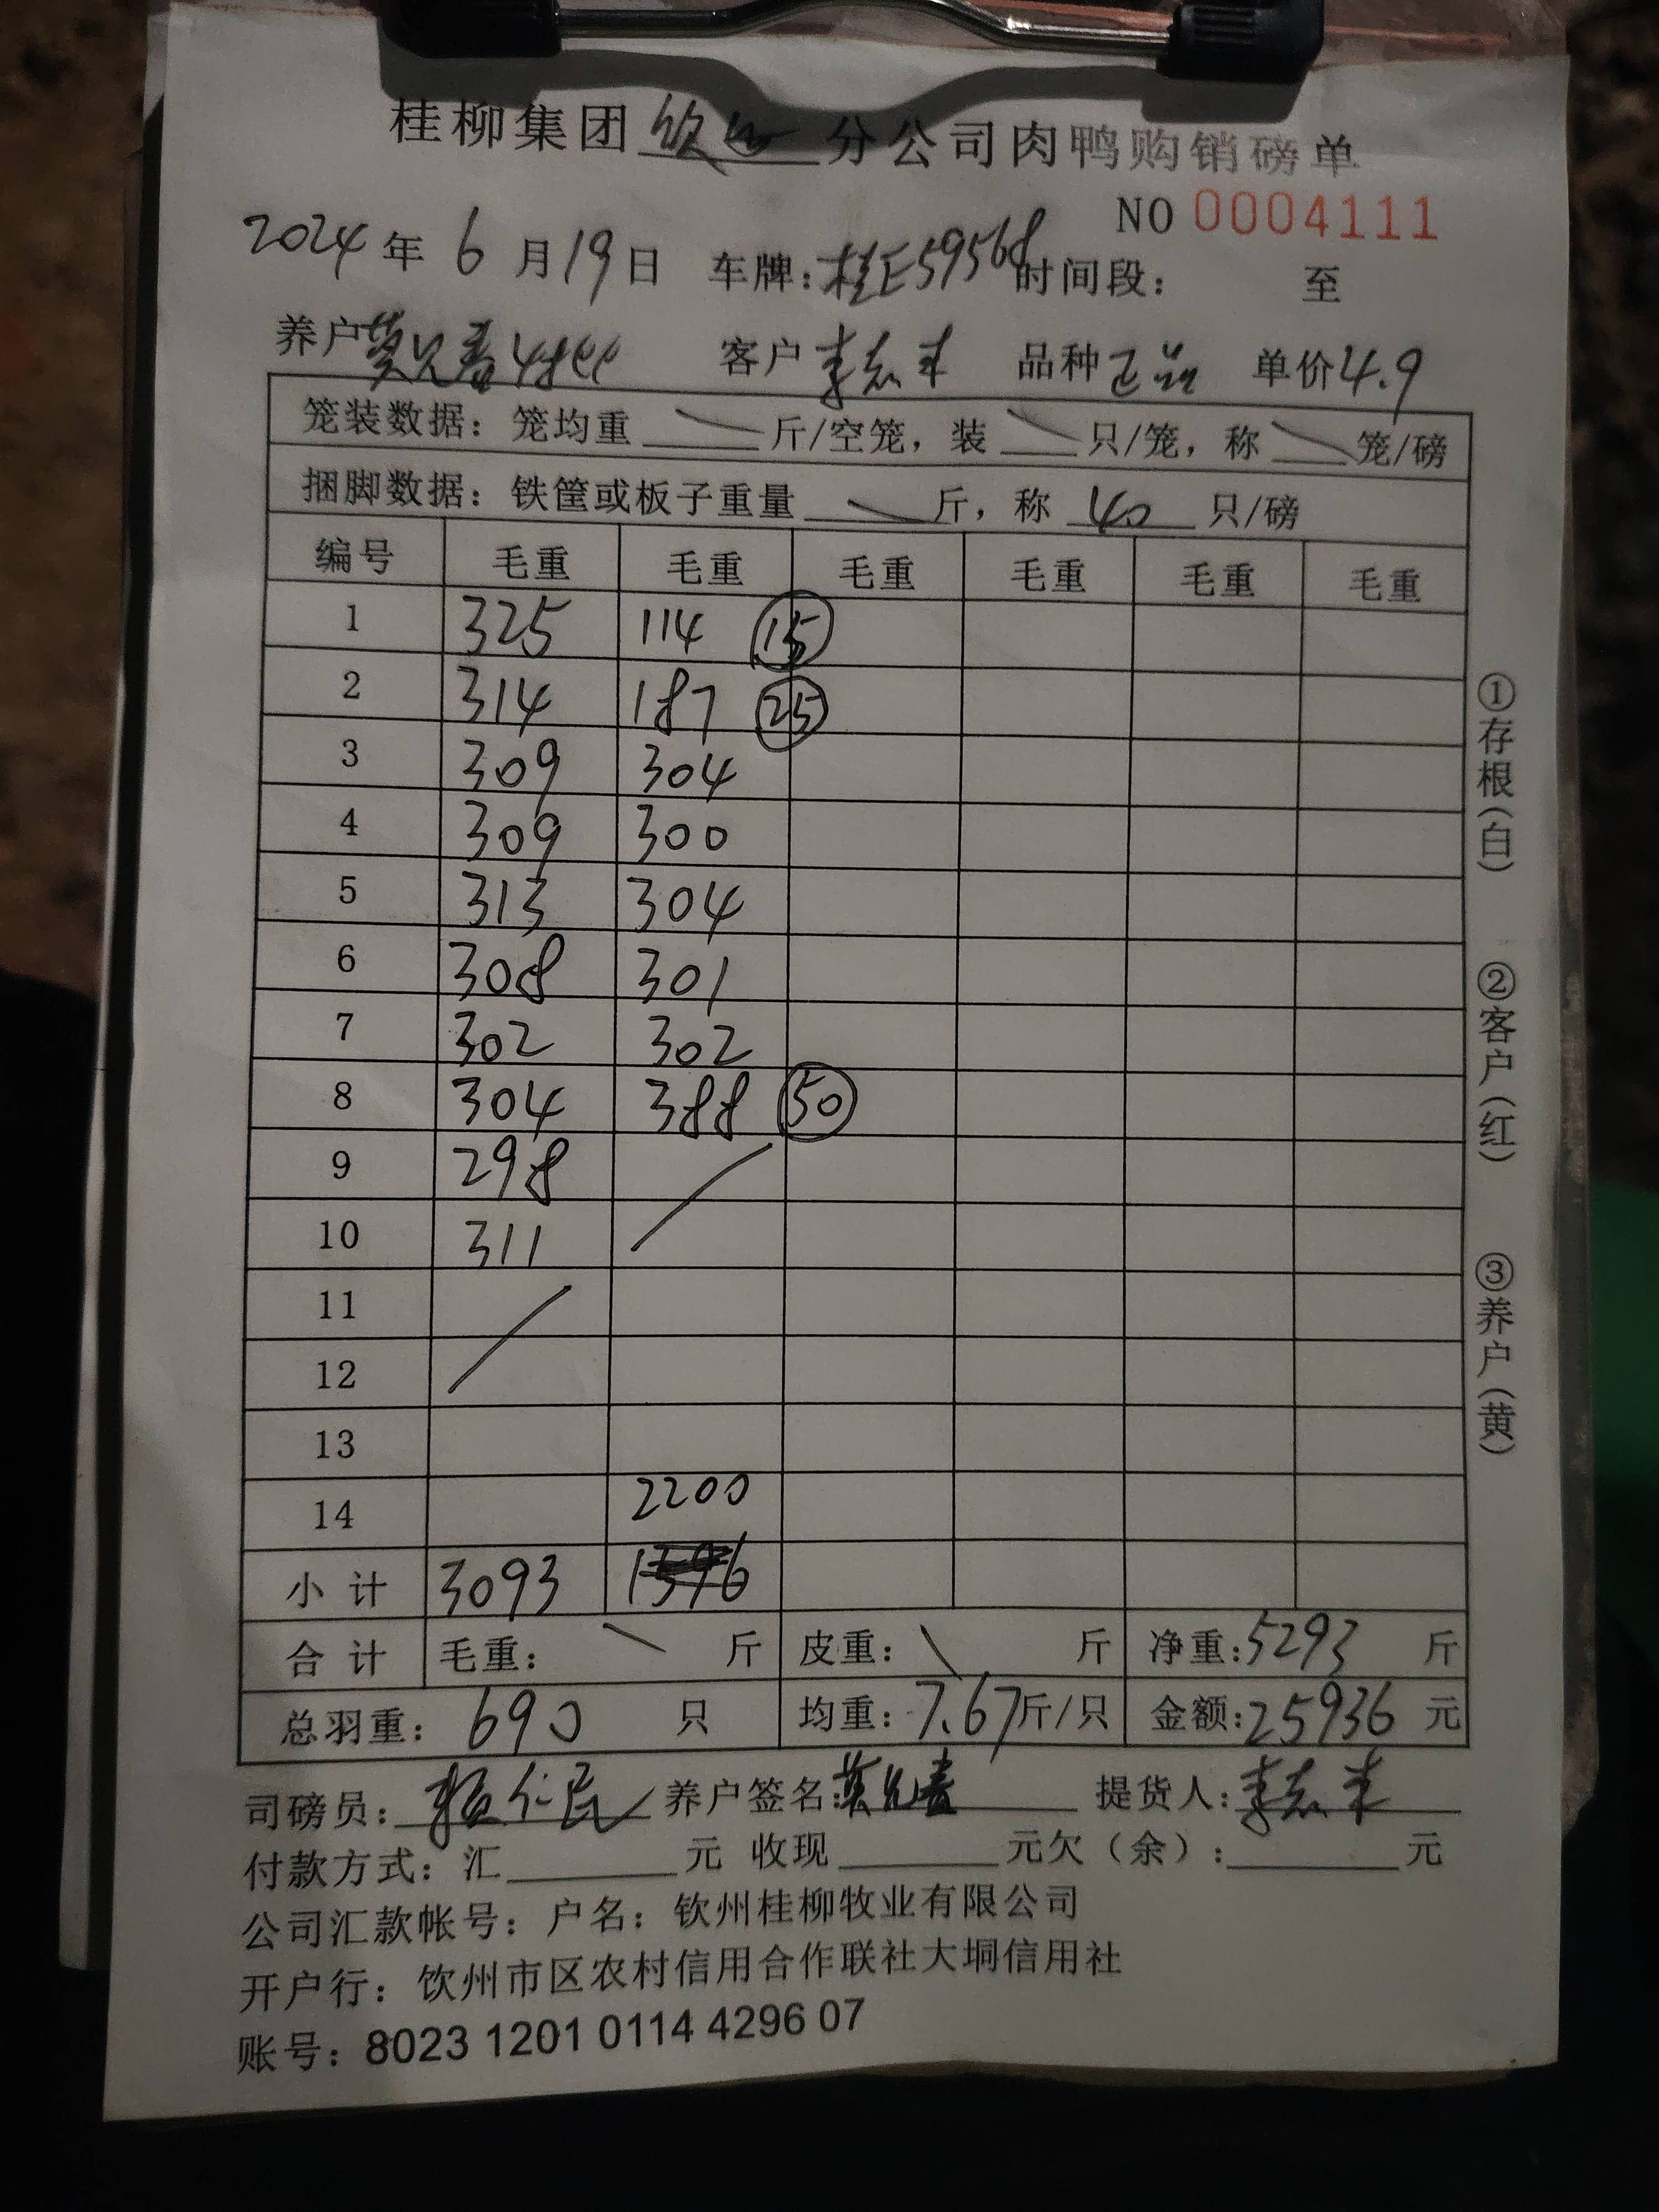 桂柳集团钦州分公司肉鸭购销磅单
NO 0004111
2024年6月19日 车牌:桂E59568 时间段: 至
养户 客户 李志 品种 正品 单价4.9
笼装数据：笼均重 斤/空笼，装 只/笼，称 笼/磅
捆脚数据：铁筐或板子重量 斤，称 40 只/磅
编号 毛重 毛重 毛重 毛重 毛重 毛重
1 325 114 ⑮
2 314 187 ㉕
3 309 304
4 309 300
5 313 304
6 308 301
7 302 302
8 304 388 ㊿
9 298
10 311
11
12
13
14 2200
小计 3093
合计 毛重： 斤 皮重： 斤 净重:5293 斤
总羽重： 690 只 均重：7.67斤/只 金额:25936 元
司磅员： 养户签名: 提货人: 李志
付款方式：汇 元 收现 元欠（余）: 元
公司汇款帐号：户名：钦州桂柳牧业有限公司
开户行：钦州市区农村信用合作联社大垌信用社
账号：8023 1201 0114 4296 07
①存根(白) ②客户(红) ③养户(黄)